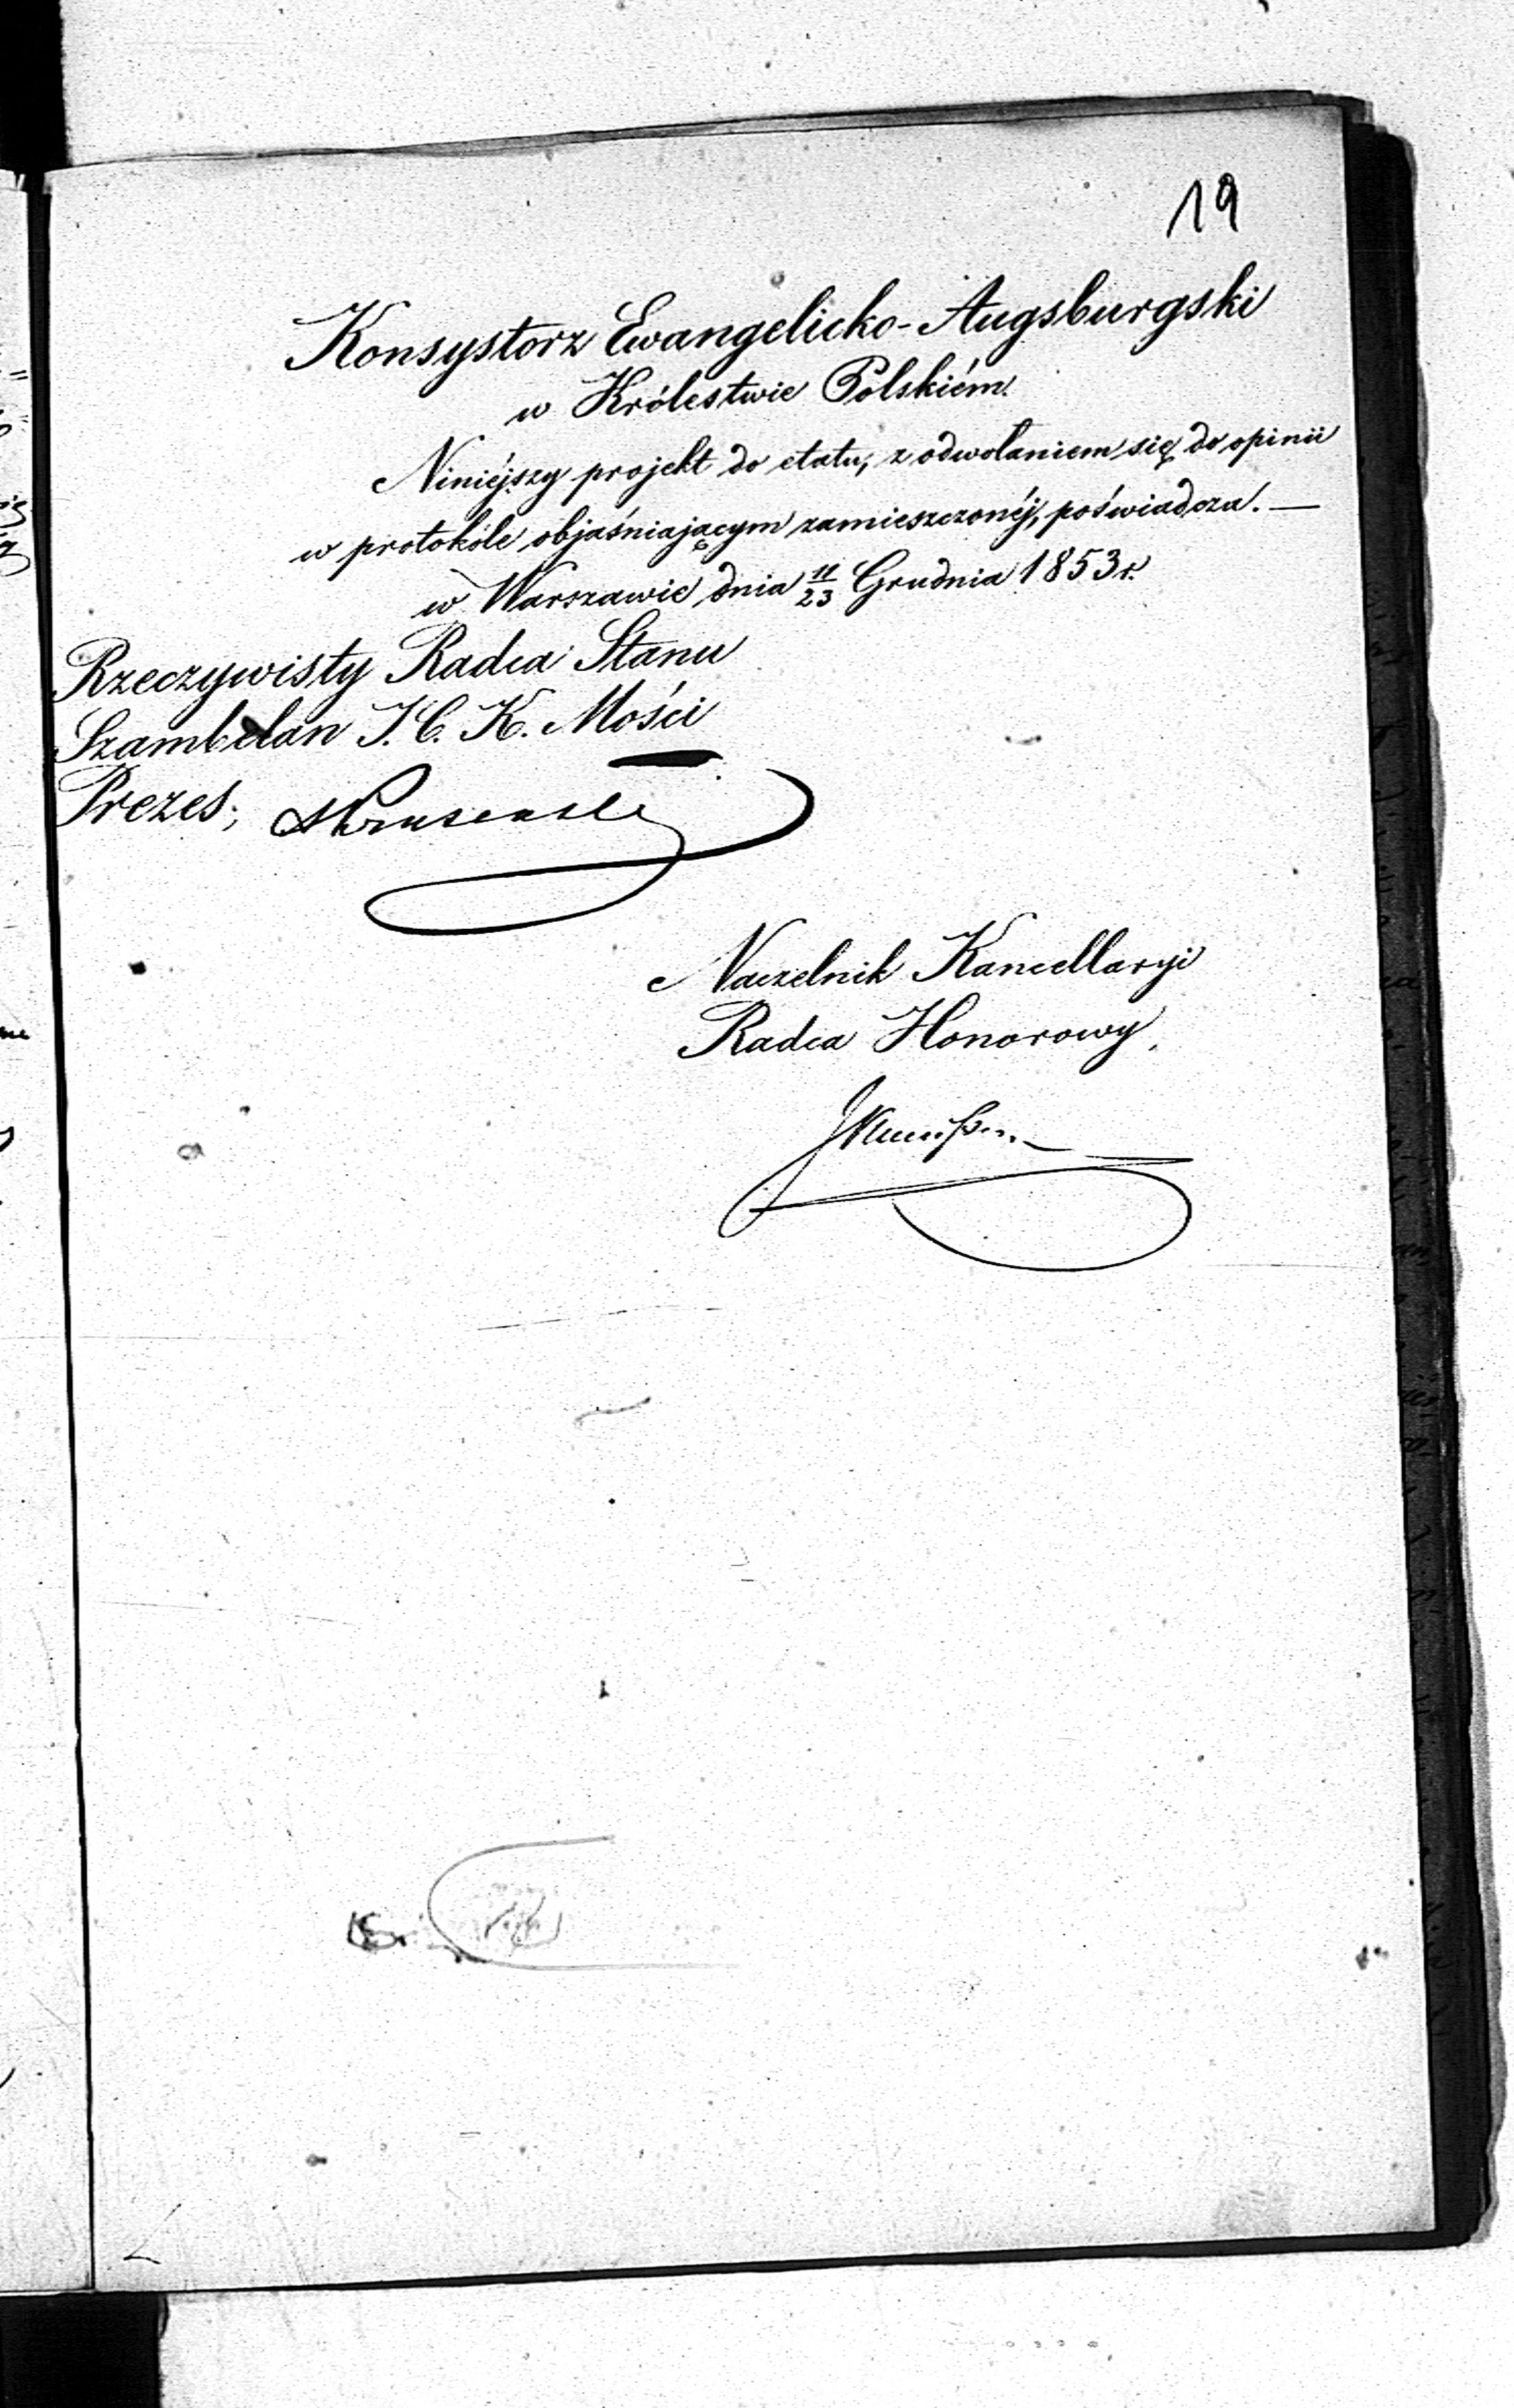 19
Konsystorz Ewangelicko-Augsburgski
w Królestwie Polskiém.
Niniéjszy projekt do etatu, z odwołaniem się do opinii
w protokóle objaśniającym zamieszczonéj, poświadcza. —
w Warszawie dnia 11/23 Grudnia 1853 r.
Rzeczywisty Radca Stanu
Szambelan J. C. K. Mości
Prezes,
Naczelnik Kancellaryi
Radca Honorowy,